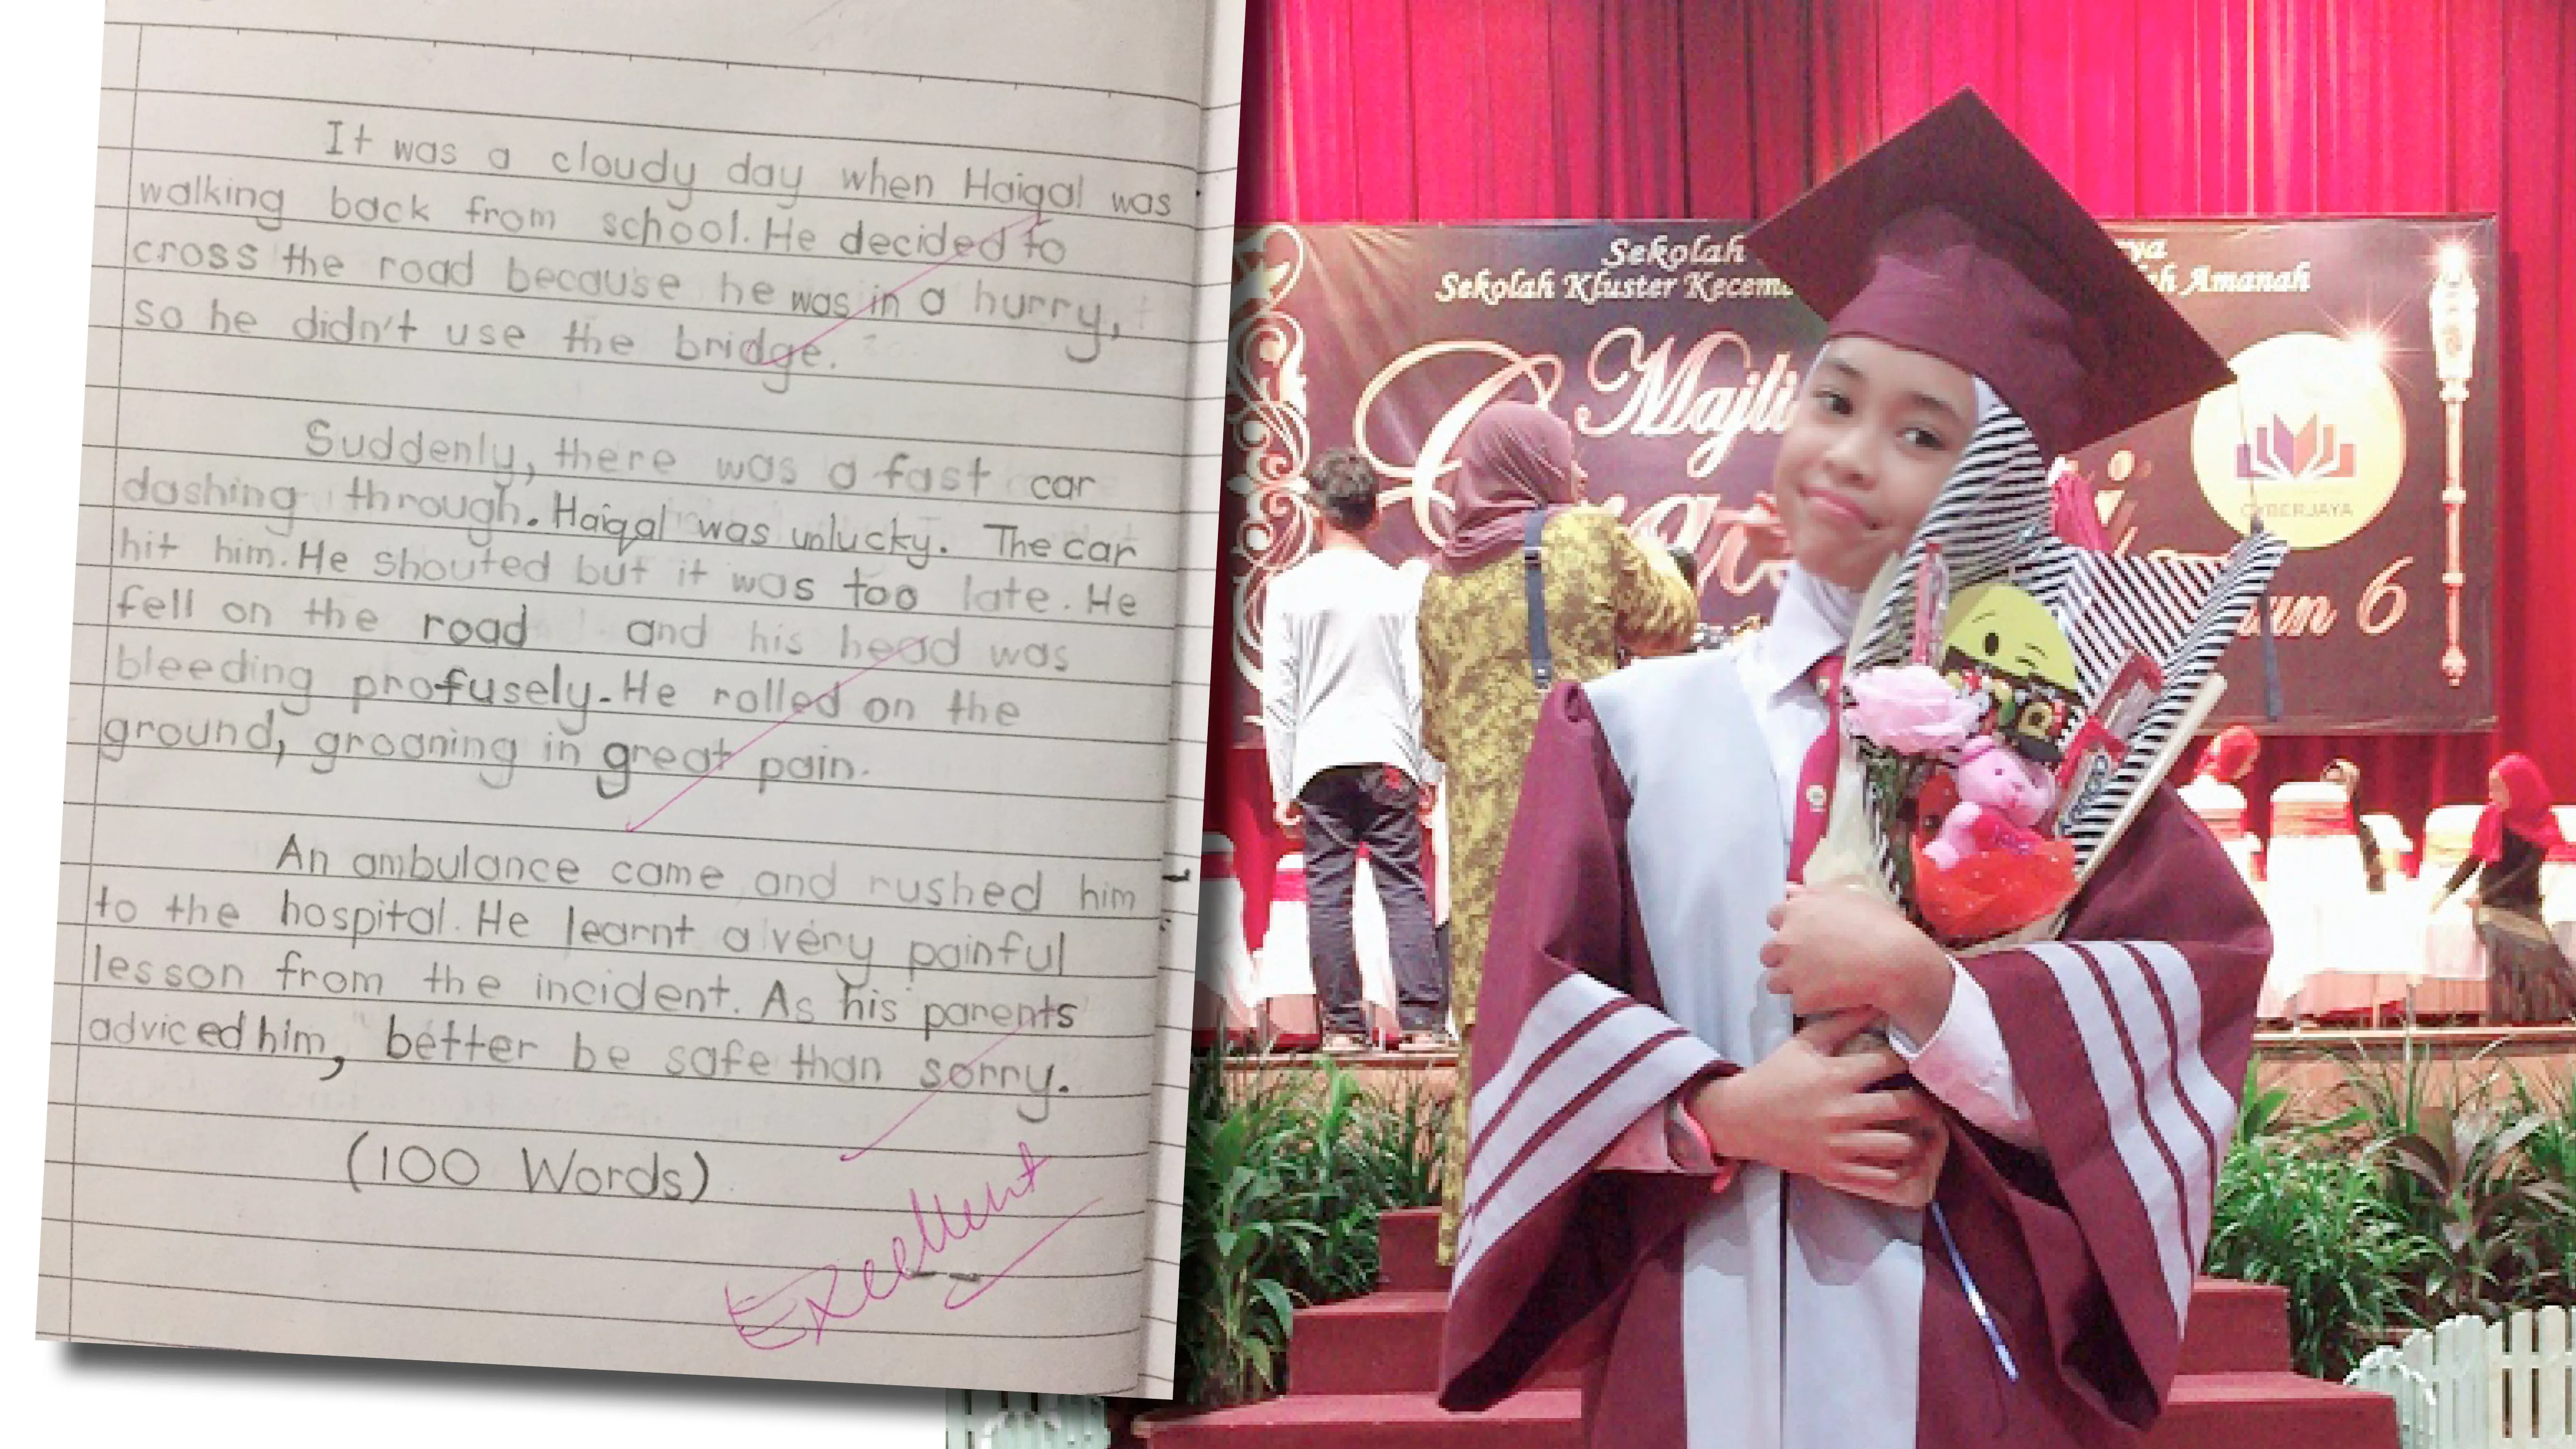 It was a cloudy day when Haiqal was
walking back from school. He decided to
cross the road because he was in a hurry,
so he didn't use the bridge.
Suddenly, there was a fast car
dashing through. Haiqal was unlucky. The car
hit him. He shouted but it was too late. He
fell on the road and his head was
bleeding profusely. He rolled on the
ground, groaning in great pain.
An ambulance came and rushed him
to the hospital. He learnt a very painful
lesson from the incident. As his parents
adviced him, better be safe than sorry.
(100 Words)
Excellent
Sekolah
Sekolah Kluster Amanah
CYBERJAYA
6